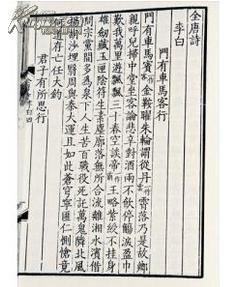 全唐詩
李白
門有車馬客行
門有車馬賓金鞍曜朱輪謂從丹霄落乃是故鄉
親呼兒掃中堂坐客論悲辛對酒兩不飲停觴淚盈巾
歎我萬里遊飄飄三十春空談帝王略紫綬不挂身
雄劍藏玉匣陰符生素塵廓落無所合流離湘水濱借
問宗黨間多爲泉下人生苦百戰役死託萬鬼鄰北風
揚胡沙埋翳周與秦大運且如此蒼穹寧匪仁惻愴竟
何道存亡任大鈞
君子有所思行